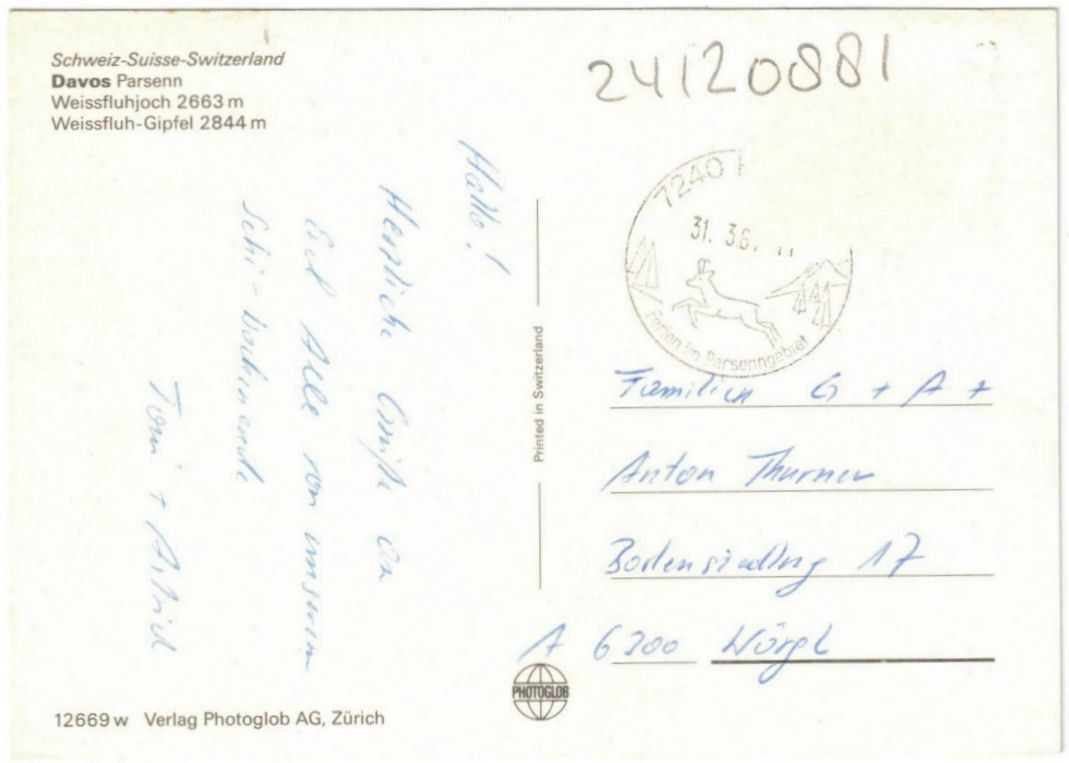 Schweiz-Suisse-Switzerland
Davos Parsenn
Weissfluhjoch 2663 m
Weissfluh-Gipfel 2844 m
24120881
7240
31. 3.
Ferien im Parsenngebiet
Hallo!
Herzliche Grüße an
Euch Alle von unserem
Schi-Wochenende
Tomi + Astrid
Printed in Switzerland
Familien G + A +
Anton Thurner
Bodensiedlung 17
A 6300 Wörgl
PHOTOGLOB
12669 w Verlag Photoglob AG, Zürich